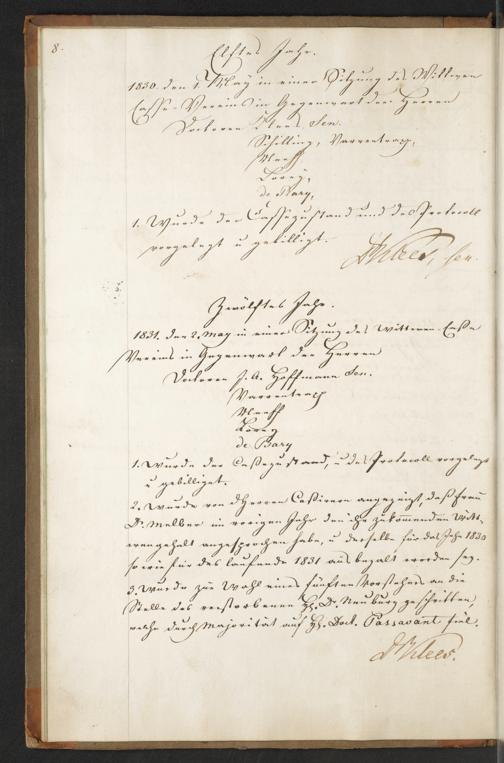 8.
Elftes Jahr.
1830. den 1. May in einer Sitzung des Wittwen
Casse-Vereins in Gegenwart der Herren
Doctoren Klees Sen.
Schilling, Varrentrapp,
Lorey,
de Bary,
1. Wurde der Cassezustand und das Protocoll
vorgelegt u gebilligt.
Dr Klees, sen.
Zwölftes Jahr.
1831. den 2. May in einer Sitzung des Wittwen Casse
Vereins in Gegenwart der Herren
Doctoren J. A. Hoffmann Sen.
Varrentrapp
Lorey
de Bary
1. Wurde der Cassezustand, u das Protocoll vorgelegt
u gebilliget.
2. Wurde von Herren Cassirern angezeigt, daß Frau
Dr. Melber im vorigen Jahr den ihr zukommenden Witt-
wengehalt angesprochen habe, u derselbe für das Jahr 1830
so wie für das laufende 1831 ausbezalt worden sey.
3. Wurde zur Wahl eines fünften Vorstehers an die
Stelle des verstorbenen H. Dr. Neuburg geschritten,
welche durch Majorität auf H. Doct. Passavant fiel.
Dr Klees.